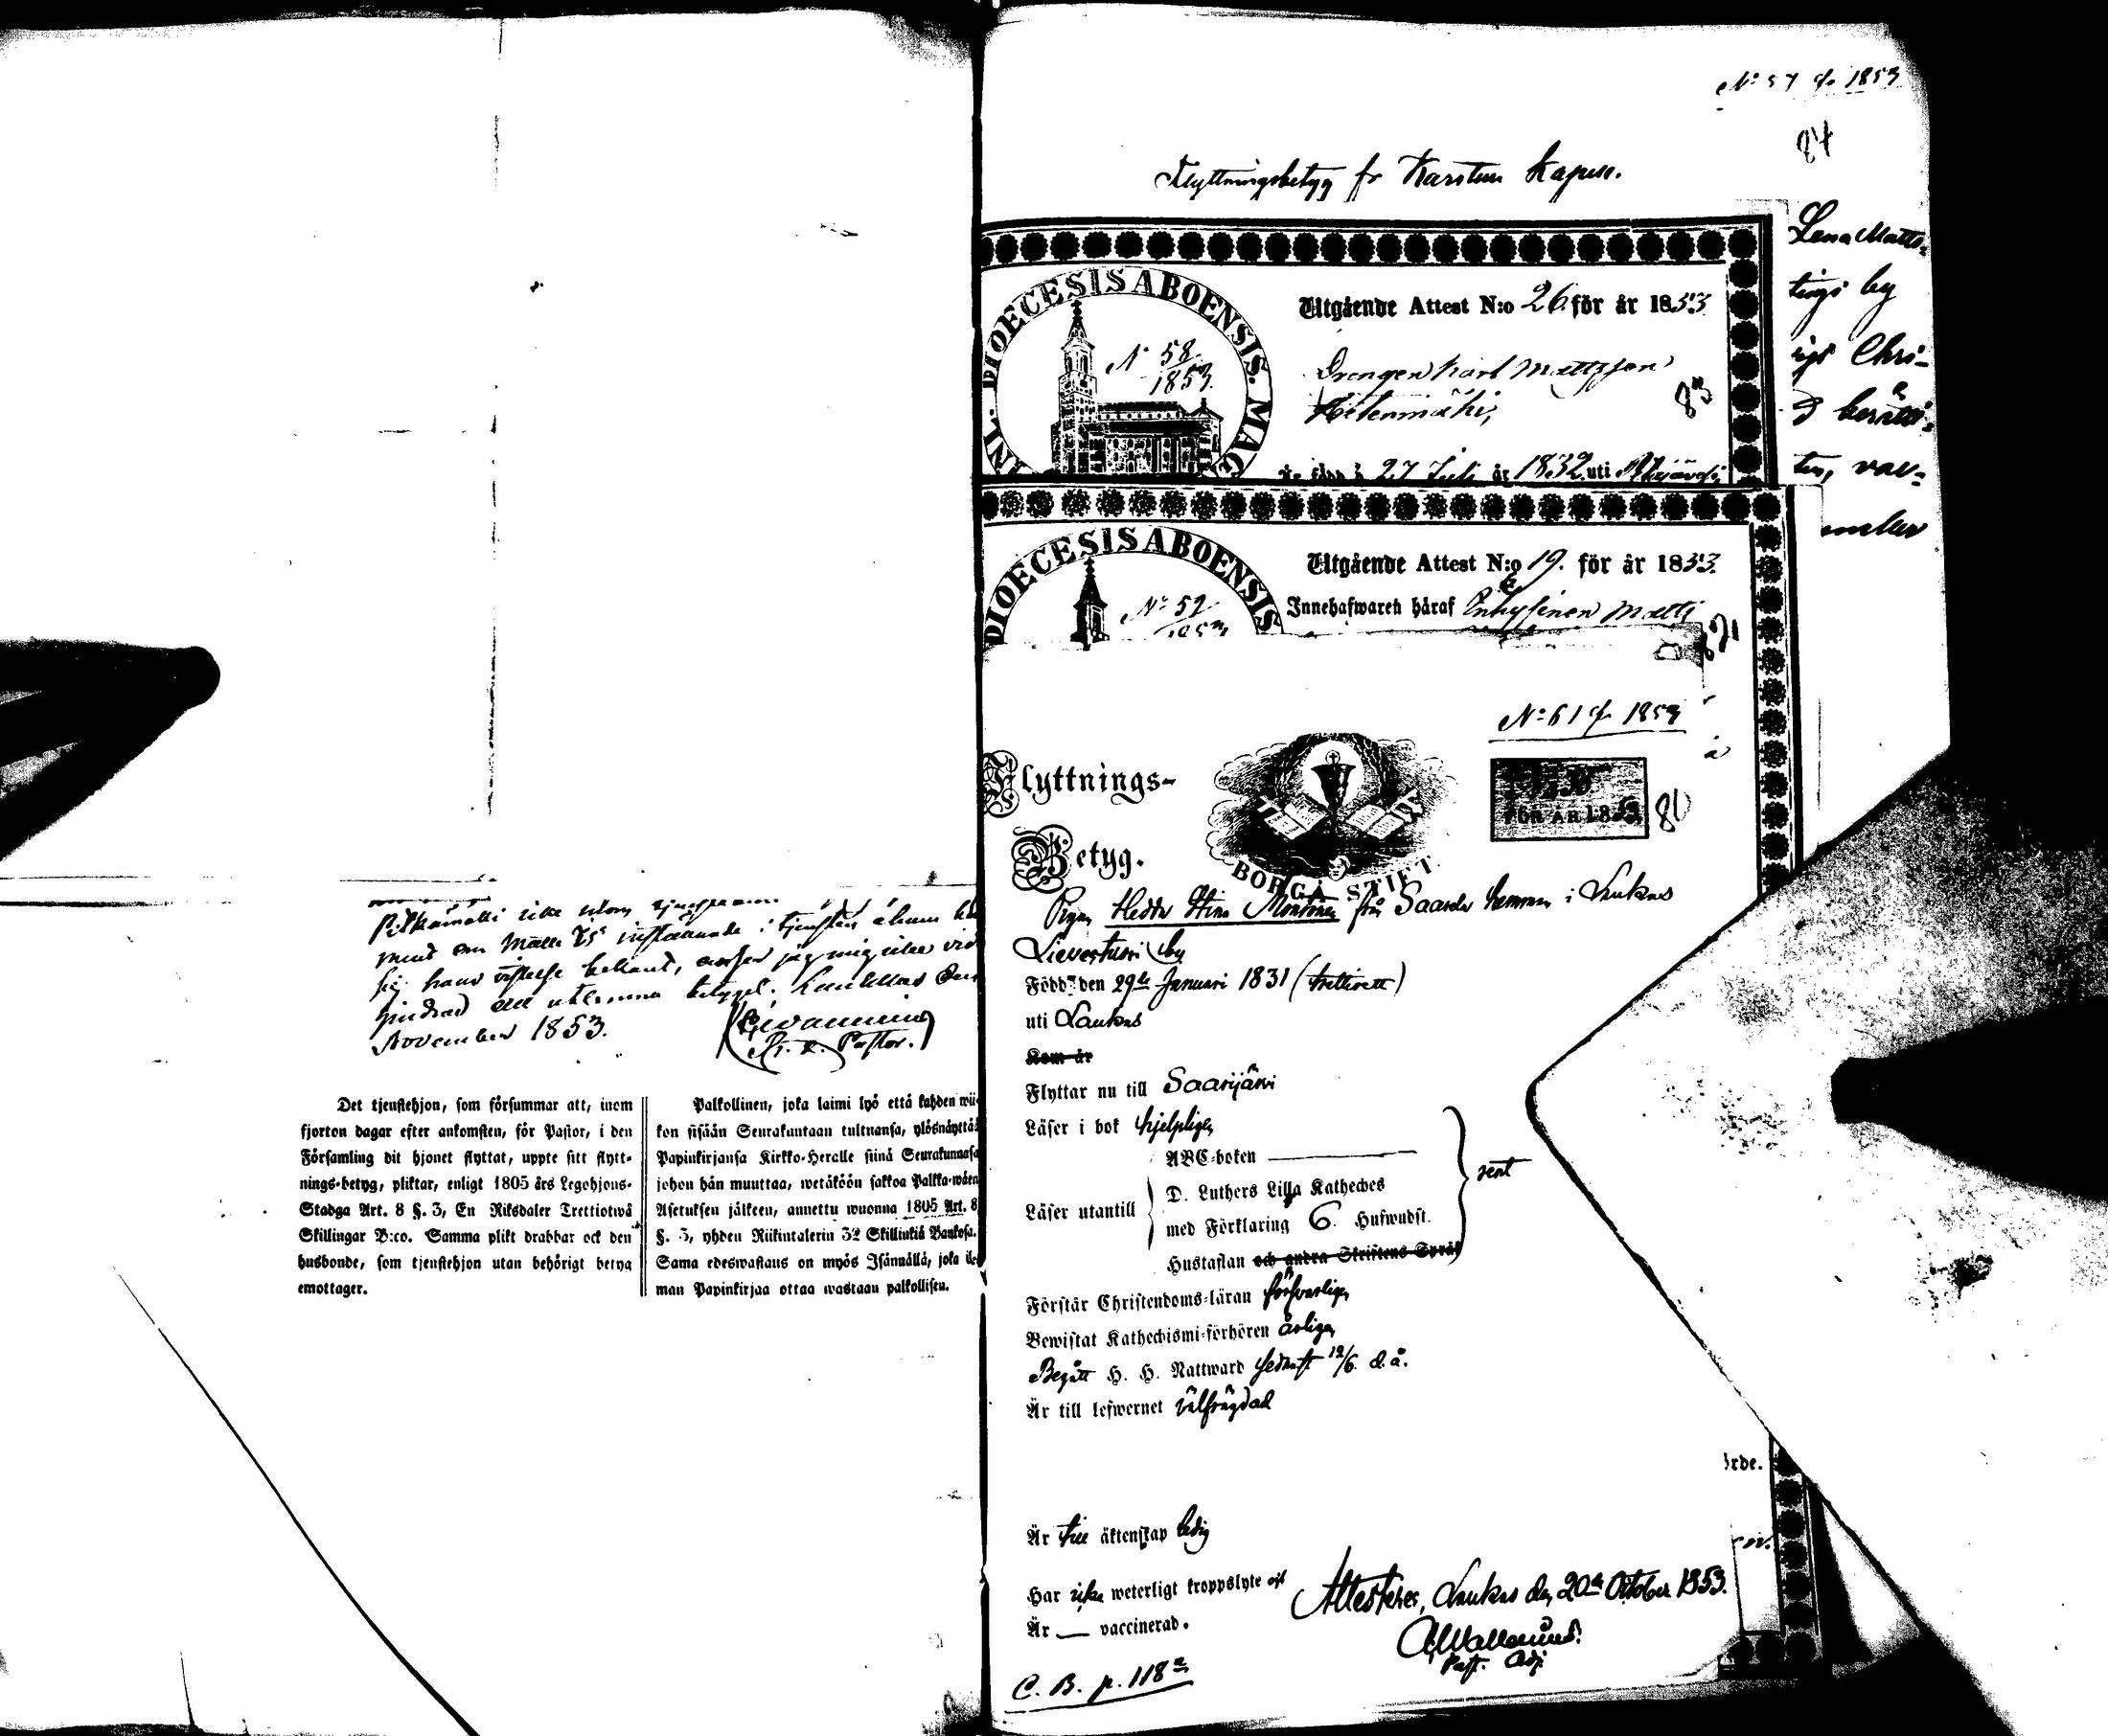 Pilkämäki icke utom
hans vistelse bekant, anser jag mig icke
hindrad att utlemna betyget. Laukkas den
November 1853.
Pastor.
Det tjenstehjon, som försummar att, inom
fjorton dagar efter ankomsten, för Pastor, i den
Församling dit hjonet flyttat, uppte sitt flytt-
nings-betyg, pliktar, enligt 1805 års Legohjons-
Stadga Art. 8 §. 3, En Riksdaler Trettiotwå
Skillingar B:co. Samma plikt drabbar ock den
husbonde, som tjenstehjon utan behörigt betyg
emottager.
Palkollinen, joka laimi lyö että kahden wii-
kon sisään Seurakuntaan tultuansa, ylösnäyttää
Papinkirjansa Kirkko-Heralle siinä Seurakunnasa
johon hän muuttaa, wetäköön sakkoa Palkka-wäen
Asetuksen jälkeen, annettu wuonna 1805 Art. 8
§. 3, yhden Riikintalerin 32 Skillinkiä Bankosa.
Sama edeswastaus on myös Isännällä, joka il-
man Papinkirjaa ottaa wastaan palkollisen.
No 57 för 1853
84
Flyttningsbetyg för Karsten Kapell.
Lena Matts-
tings by
igs Chri-
d berätti-
DIOECESIS ABOENSIS. MAG
No 58
1853.
Utgående Attest N:o 26 för år 1853
Drengen Karl Mattsson
83
är född d. 27 Juli år 1832 uti
DIOECESIS ABOENSIS
No 59
1853
Utgående Attest N:o 19. för år 1853.
Innehafwaren häraf Inhysinen Matti
82
No 61 för 1853
Flyttnings-
Betyg.
FÖR ÅR 1853
81
BORGÅ STIFT.
Pigan Hedda Stina Mononen från Saarela hemman i Laukas
Lievestuori by
Född den 29de Januari 1831 (trettioett)
uti Laukas
Kom år
Flyttar nu till Saarijärvi
Läser i bok hjelpligen
Läser utantill
ABC-boken
D. Luthers Lilla Kateches
med Förklaring 6. Hufwudst.
Hustaflan och andra Skriftens Språk
svat
Förstår Christendoms-läran försvarligen
Bewistat Kathechismi-förhören årligen
Begått H. H. Nattward sednast 19/6. d.å.
Är till lefwernet välfrägdad
Är till äktenskap ledig
Har icke weterligt kroppslyte och
Är — vaccinerad.
Attesterar, Laukas den 20de Oktober 1853.
Past. Adj.
C. B. p. 118